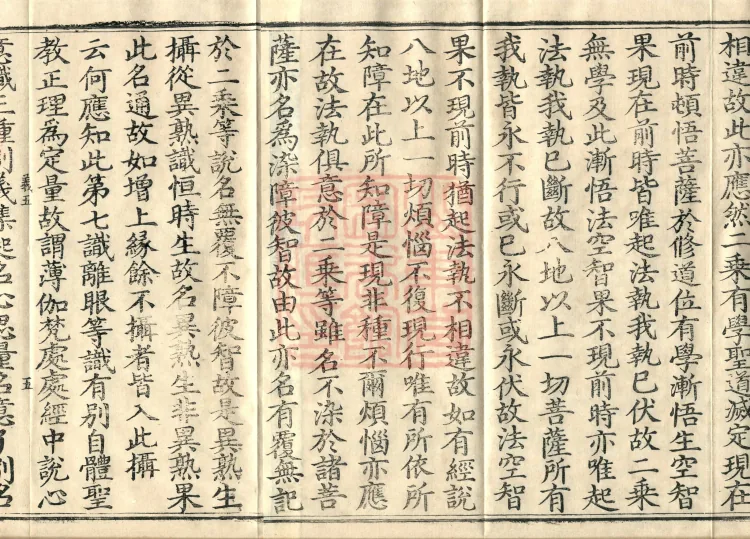 相違故此亦應然二乘有學聖道滅定現在
前時頓悟菩薩於修道位有學漸悟生空智
果現在前時皆唯起法執我執已伏故二乘
無學及此漸悟法空智果不現前時亦唯起
法執我執已斷故八地以上一切菩薩所有
我執皆永不行或已永斷或永伏故法空智
果不現前時猶起法執不相違故如有經說
八地以上一切煩惱不復現行唯有所依所
知障在此所知障是現非種不爾煩惱亦應
在故法執俱意於二乘等雖名不染於諸菩
薩亦名為染障彼智故由此亦名有覆無記
於二乘等說名無覆不障彼智故是異熟生
攝從異熟識恒時生故名異熟生非異熟果
此名通故如增上緣餘不攝者皆入此攝
云何應知此第七識離眼等識有別自體聖
教正理為定量故謂薄伽梵處處經中說心
義五
五
意識三種別義集起名心思量名意了別名